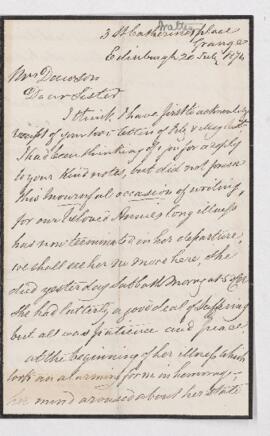 3 St Catherine place
Grange
Edinburgh 20 July 1874
Mrs Dawson
Dear Sister
I think I have first to acknowledge
receipt of your two letters of Feby & May last
I had been thinking of you for a reply
to your kind notes, but did not foresee
this mournful occasion of writing,
for our beloved Annie's long illness
has now terminated in her departure,
we shall see her no more here, she
died yesterday Sabbath Morng at 5
She had latterly a good deal of suffering
but all was patience and peace
at the beginning of her illness which
took an alarming form in hemorrage
her mind aroused about her state